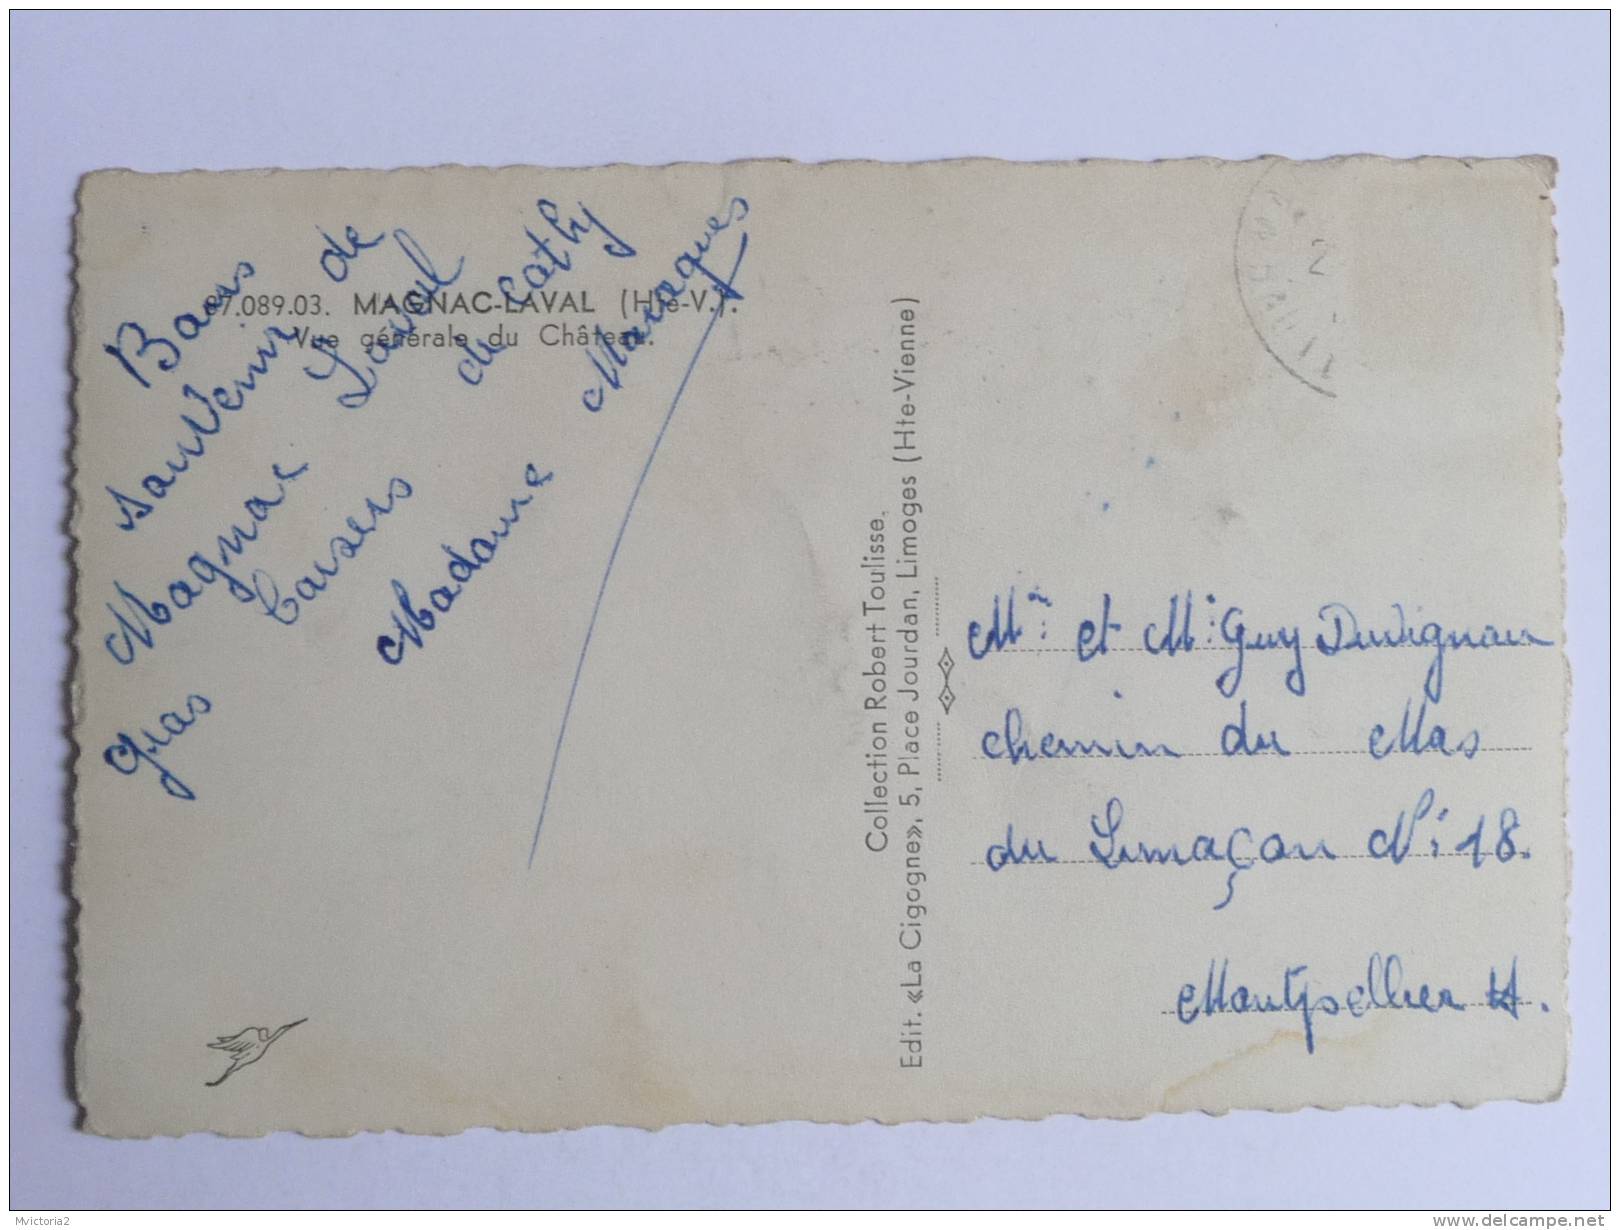 87.089.03. MAGNAC-LAVAL (Hte-V.).
Vue générale du Château.
Bons
souvenir de
Magnac Laval
Gros baisers de Cathy
Madame Marques
Collection Robert Toulisse.
Edit. «La Cigogne», 5, Place Jourdan, Limoges (Hte-Vienne)
Mr et Mr Guy Duvignau
chemin du Mas
du Limaçon N: 18.
Montpellier H.
Mvictoria2
www.delcampe.net